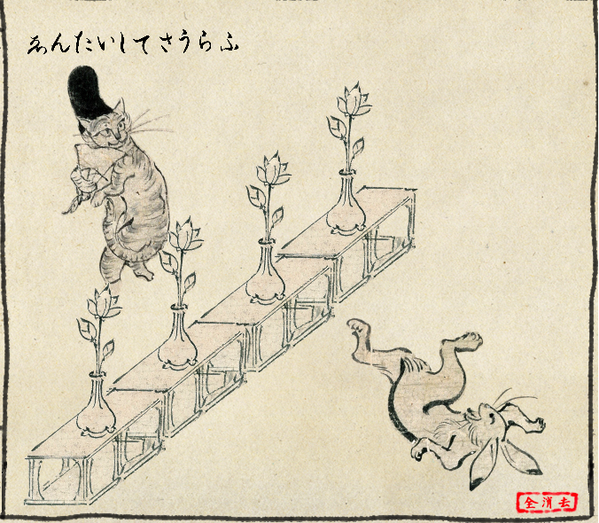 ゐんたいしてさうらふ
全消去